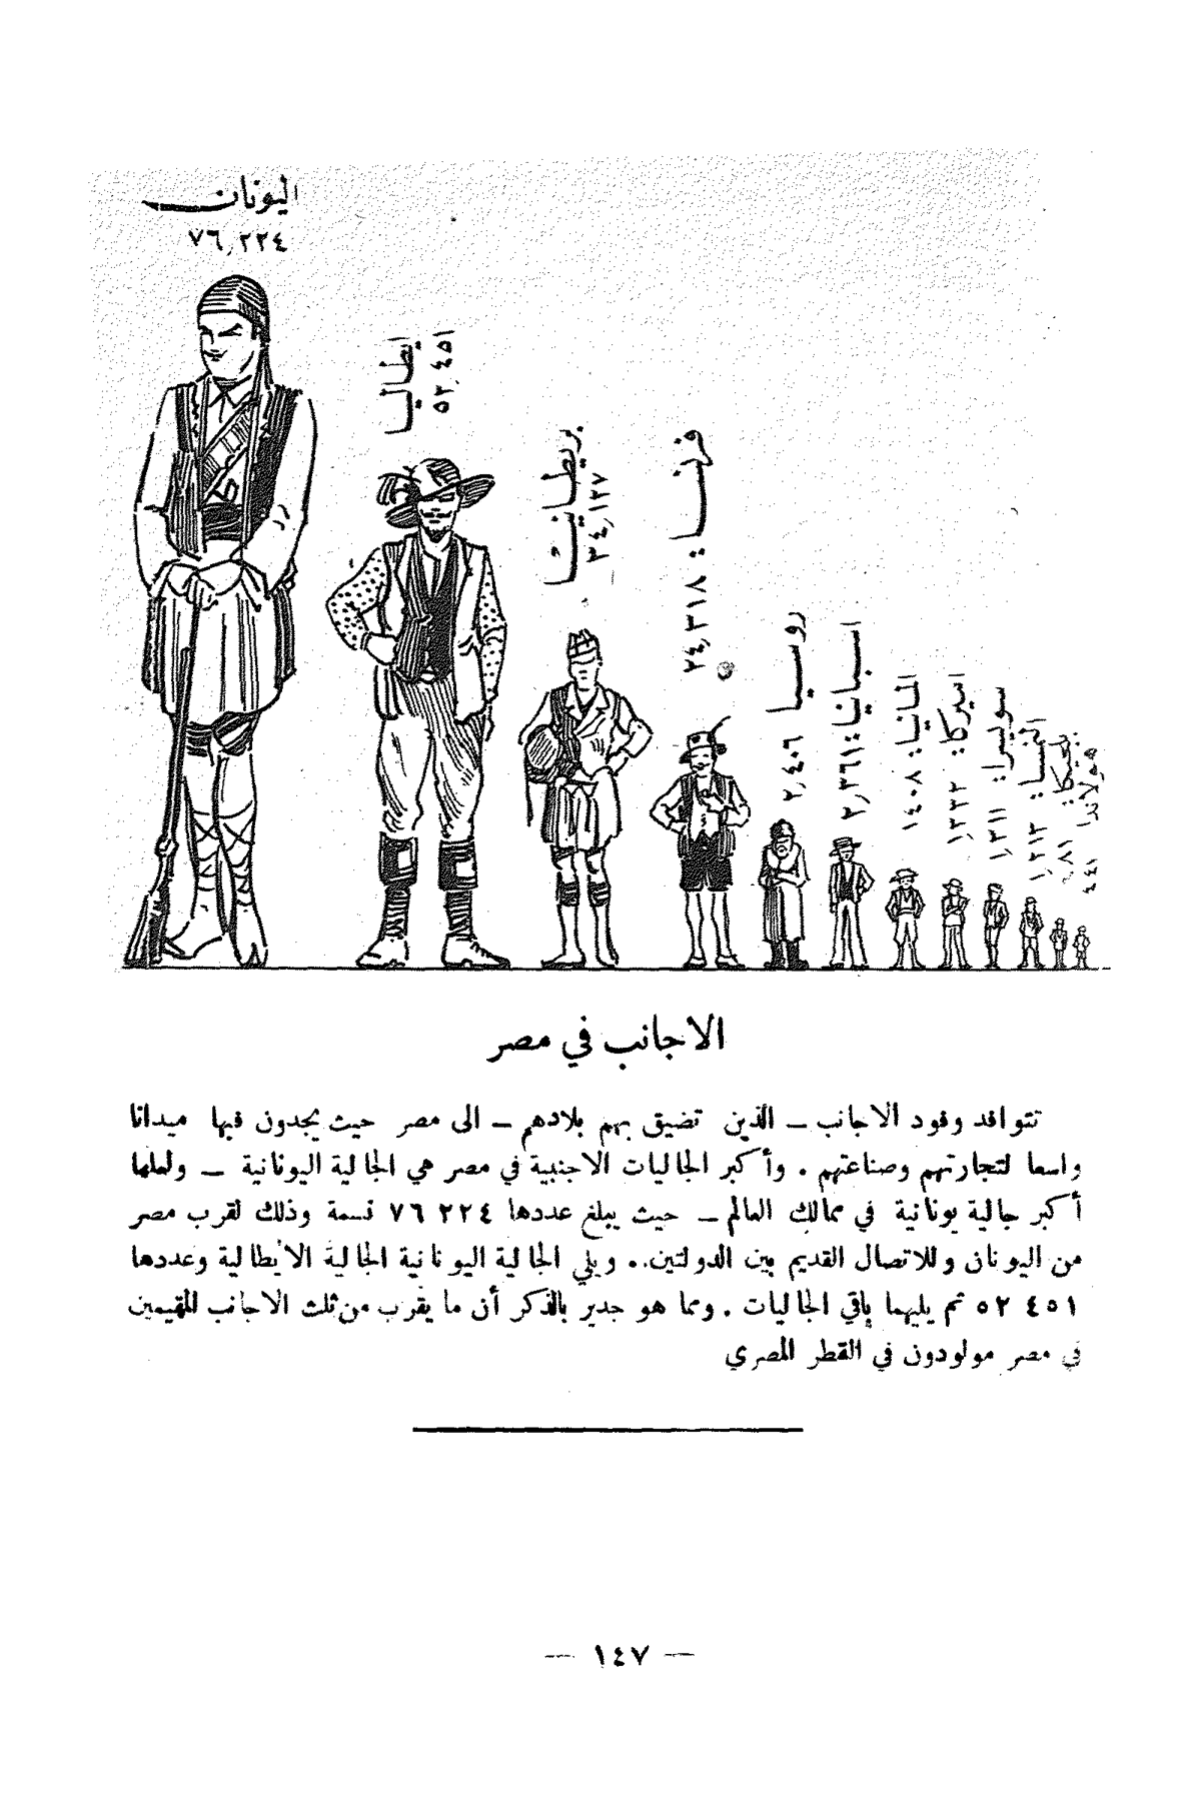 اليونان
٧٦,٢٢٤
ايطاليا
٥٢,٤٥١
بريطانيا
٣٤,١٢٧
فرنسا:
٢٤,٣١٨
روسيا
٢,٤٠٦
اسبانيا
المانيا:
١٤٠٨
اميركا:
١,٣٣٢
سويسرا:
١,٣١١
النمسا:
١,٢١٣
بلجيكا
هولاندا
٤٤١
الاجانب في مصر
تتوافد وفود الاجانب – الذين تضيق بهم بلادهم – الى مصر حيث يجدون فيها ميدانا
واسعا لتجارتهم وصناعتهم . وأكبر الجاليات الاجنبية في مصر هي الجالية اليونانية – ولعلها
أكبر جالية يونانية في ممالك العالم – حيث يبلغ عددها ٢٢٤ ٧٦ نسمة وذلك لقرب مصر
من اليونان وللاتصال القديم بين الدولتين . ويلي الجالية اليونانية الجالية الايطالية وعددها
٤٥١ ٥٢ ثم يليهما باقي الجاليات . ومما هو جدير بالذكر أن ما يقرب من ثلث الاجانب المقيمين
في مصر مولودون في القطر المصري
— ١٤٧ —